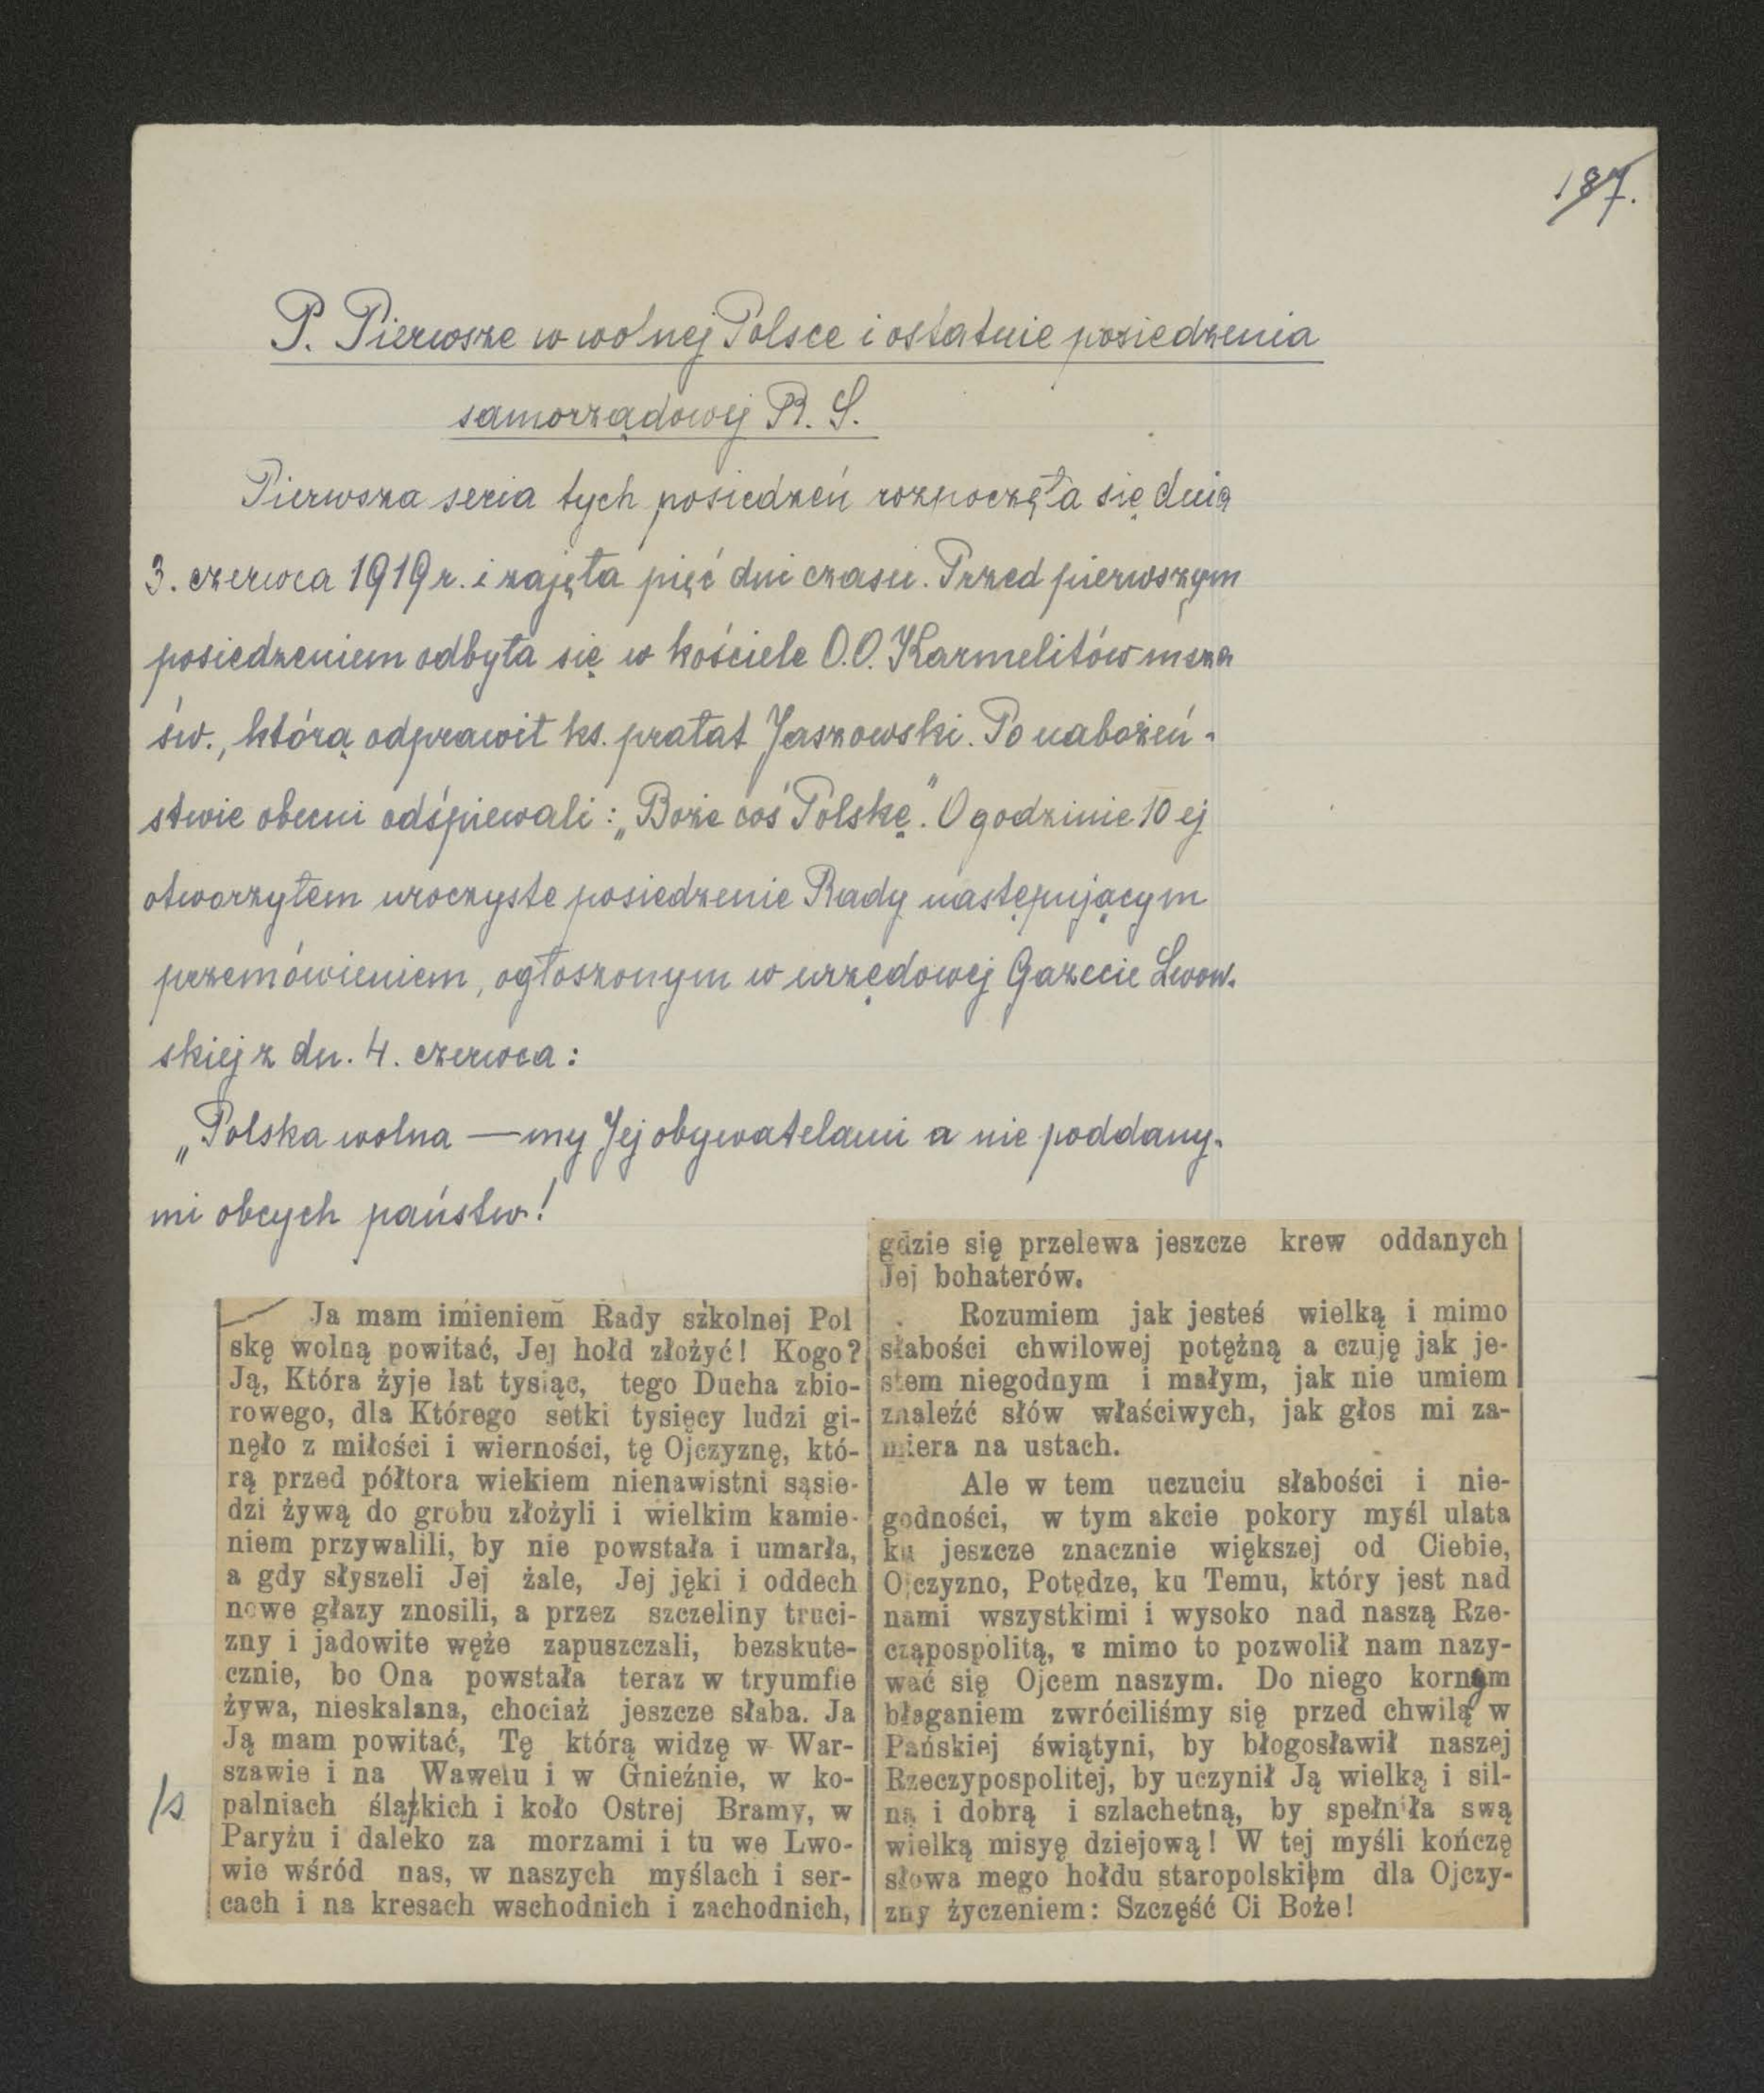 187.
P. Pierwsze w wolnej Polsce i ostatnie posiedzenia
samorządowej R. S.
Pierwsza seria tych posiedzeń rozpoczęła się dnia
3. czerwca 1919 r. i zajęła pięć dni czasu. Przed pierwszym
posiedzeniem odbyła się w kościele O.O. Karmelitów msza
św., którą odprawił ks. prałat Jaszowski. Po nabożeń-
stwie obecni odśpiewali: „Boże coś Polskę". O godzinie 10 ej
otworzyłem uroczyste posiedzenie Rady następującym
przemówieniem, ogłoszonym w urzędowej Gazecie Lwow-
skiej z dn. 4. czerwca:
„Polska wolna — my Jej obywatelami a nie poddany-
mi obcych państw!
Ja mam imieniem Rady szkolnej Pol
skę wolną powitać, Jej hołd złożyć! Kogo?
Ją, Która żyje lat tysiąc, tego Ducha zbio-
rowego, dla Którego setki tysięcy ludzi gi-
nęło z miłości i wierności, tę Ojczyznę, któ-
rą przed półtora wiekiem nienawistni sąsie-
dzi żywą do grobu złożyli i wielkim kamie-
niem przywalili, by nie powstała i umarła,
a gdy słyszeli Jej żale, Jej jęki i oddech
nowe głazy znosili, a przez szczeliny truci-
zny i jadowite węże zapuszczali, bezskute-
cznie, bo Ona powstała teraz w tryumfie
żywa, nieskalana, chociaż jeszcze słaba. Ja
Ją mam powitać, Tę którą widzę w War-
szawie i na Wawelu i w Gnieźnie, w ko-
/s palniach ślązkich i koło Ostrej Bramy, w
Paryżu i daleko za morzami i tu we Lwo-
wie wśród nas, w naszych myślach i ser-
cach i na kresach wschodnich i zachodnich,
gdzie się przelewa jeszcze krew oddanych
Jej bohaterów.
Rozumiem jak jesteś wielką i mimo
słabości chwilowej potężną a czuję jak je-
stem niegodnym i małym, jak nie umiem
znaleźć słów właściwych, jak głos mi za-
miera na ustach.
Ale w tem uczuciu słabości i nie-
godności, w tym akcie pokory myśl ulata
ku jeszcze znacznie większej od Ciebie,
Ojczyzno, Potędze, ku Temu, który jest nad
nami wszystkimi i wysoko nad naszą Rze-
cząpospolitą, a mimo to pozwolił nam nazy-
wać się Ojcem naszym. Do niego kornym
błaganiem zwróciliśmy się przed chwilą w
Pańskiej świątyni, by błogosławił naszej
Rzeczypospolitej, by uczynił Ją wielką i sil-
ną i dobrą i szlachetną, by spełniła swą
wielką misyę dziejową! W tej myśli kończę
słowa mego hołdu staropolskiem dla Ojczy-
zny życzeniem: Szczęść Ci Boże!